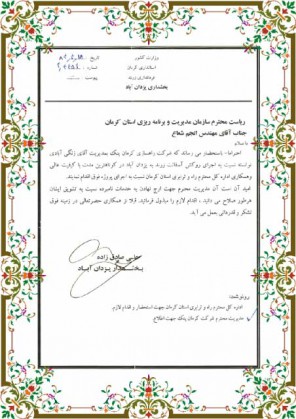 وزارت کشور
استانداری کرمان
فرمانداری زرند
بخشداری یزدان آباد
تاریخ
شماره
پیوست
ریاست محترم سازمان مدیریت و برنامه ریزی استان کرمان
جناب آقای مهندس انجم شعاع
با سلام
احتراما- باستحضار می رساند که شرکت راهسازی کرمان پنک بمدیریت آقای زنگی آبادی
توانسته نسبت به اجرای روکش آسفالت زرند به یزدان آباد در کوتاهترین مدت با کیفیت عالی
وهمکاری اداره کل محترم راه و ترابری استان کرمان نسبت به اجرای پروژه فوق اقدام نمایند.
امید آن است آن مدیریت محترم جهت ارج نهادن به خدمات نامبرده نسبت به تشویق ایشان
هرطور صلاح می دانید ، اقدام لازم را مبذول فرمائید. قبلا از همکاری حضرتعالی در زمینه فوق
تشکر و قدردانی بعمل می آید.
علی صادق زاده
بخشدار یزدان آباد
رونوشت:
اداره کل محترم راه و ترابری استان کرمان جهت استحضار و اقدام لازم.
مدیریت محترم شرکت کرمان پنک جهت اطلاع.